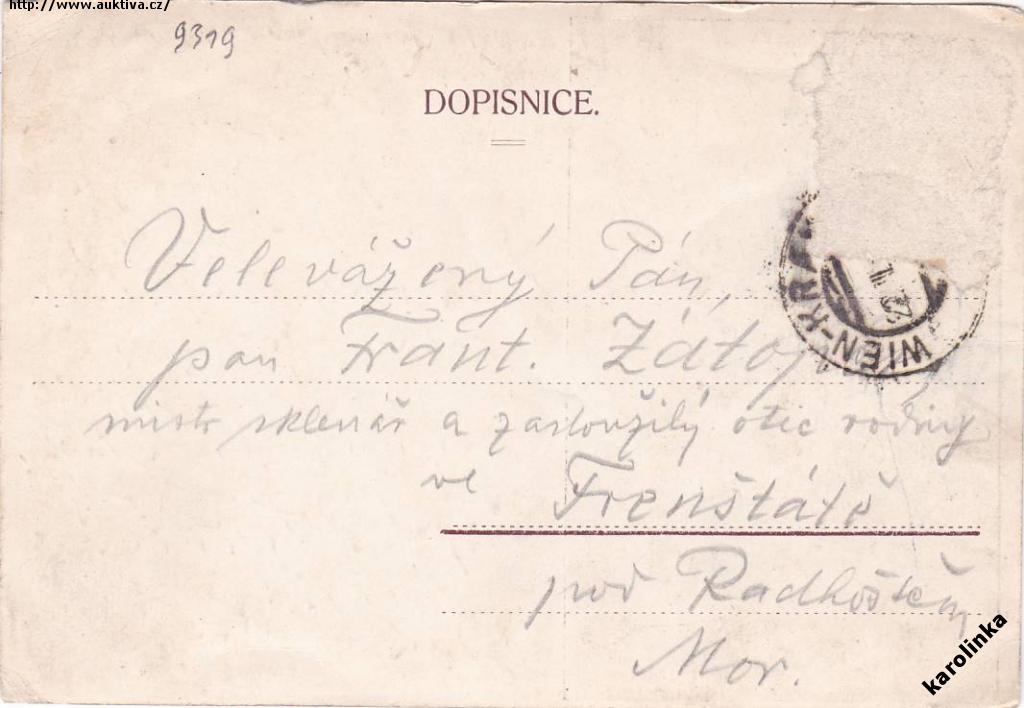 http://www.auktiva.cz/
9319
DOPISNICE.
Velevážený Pán,
pan Frant.
mistr sklenář a zasloužilý otec rodiny
ve Frenštátě
pod Radhoštěm
Mor.
WIEN-KRA
karolinka